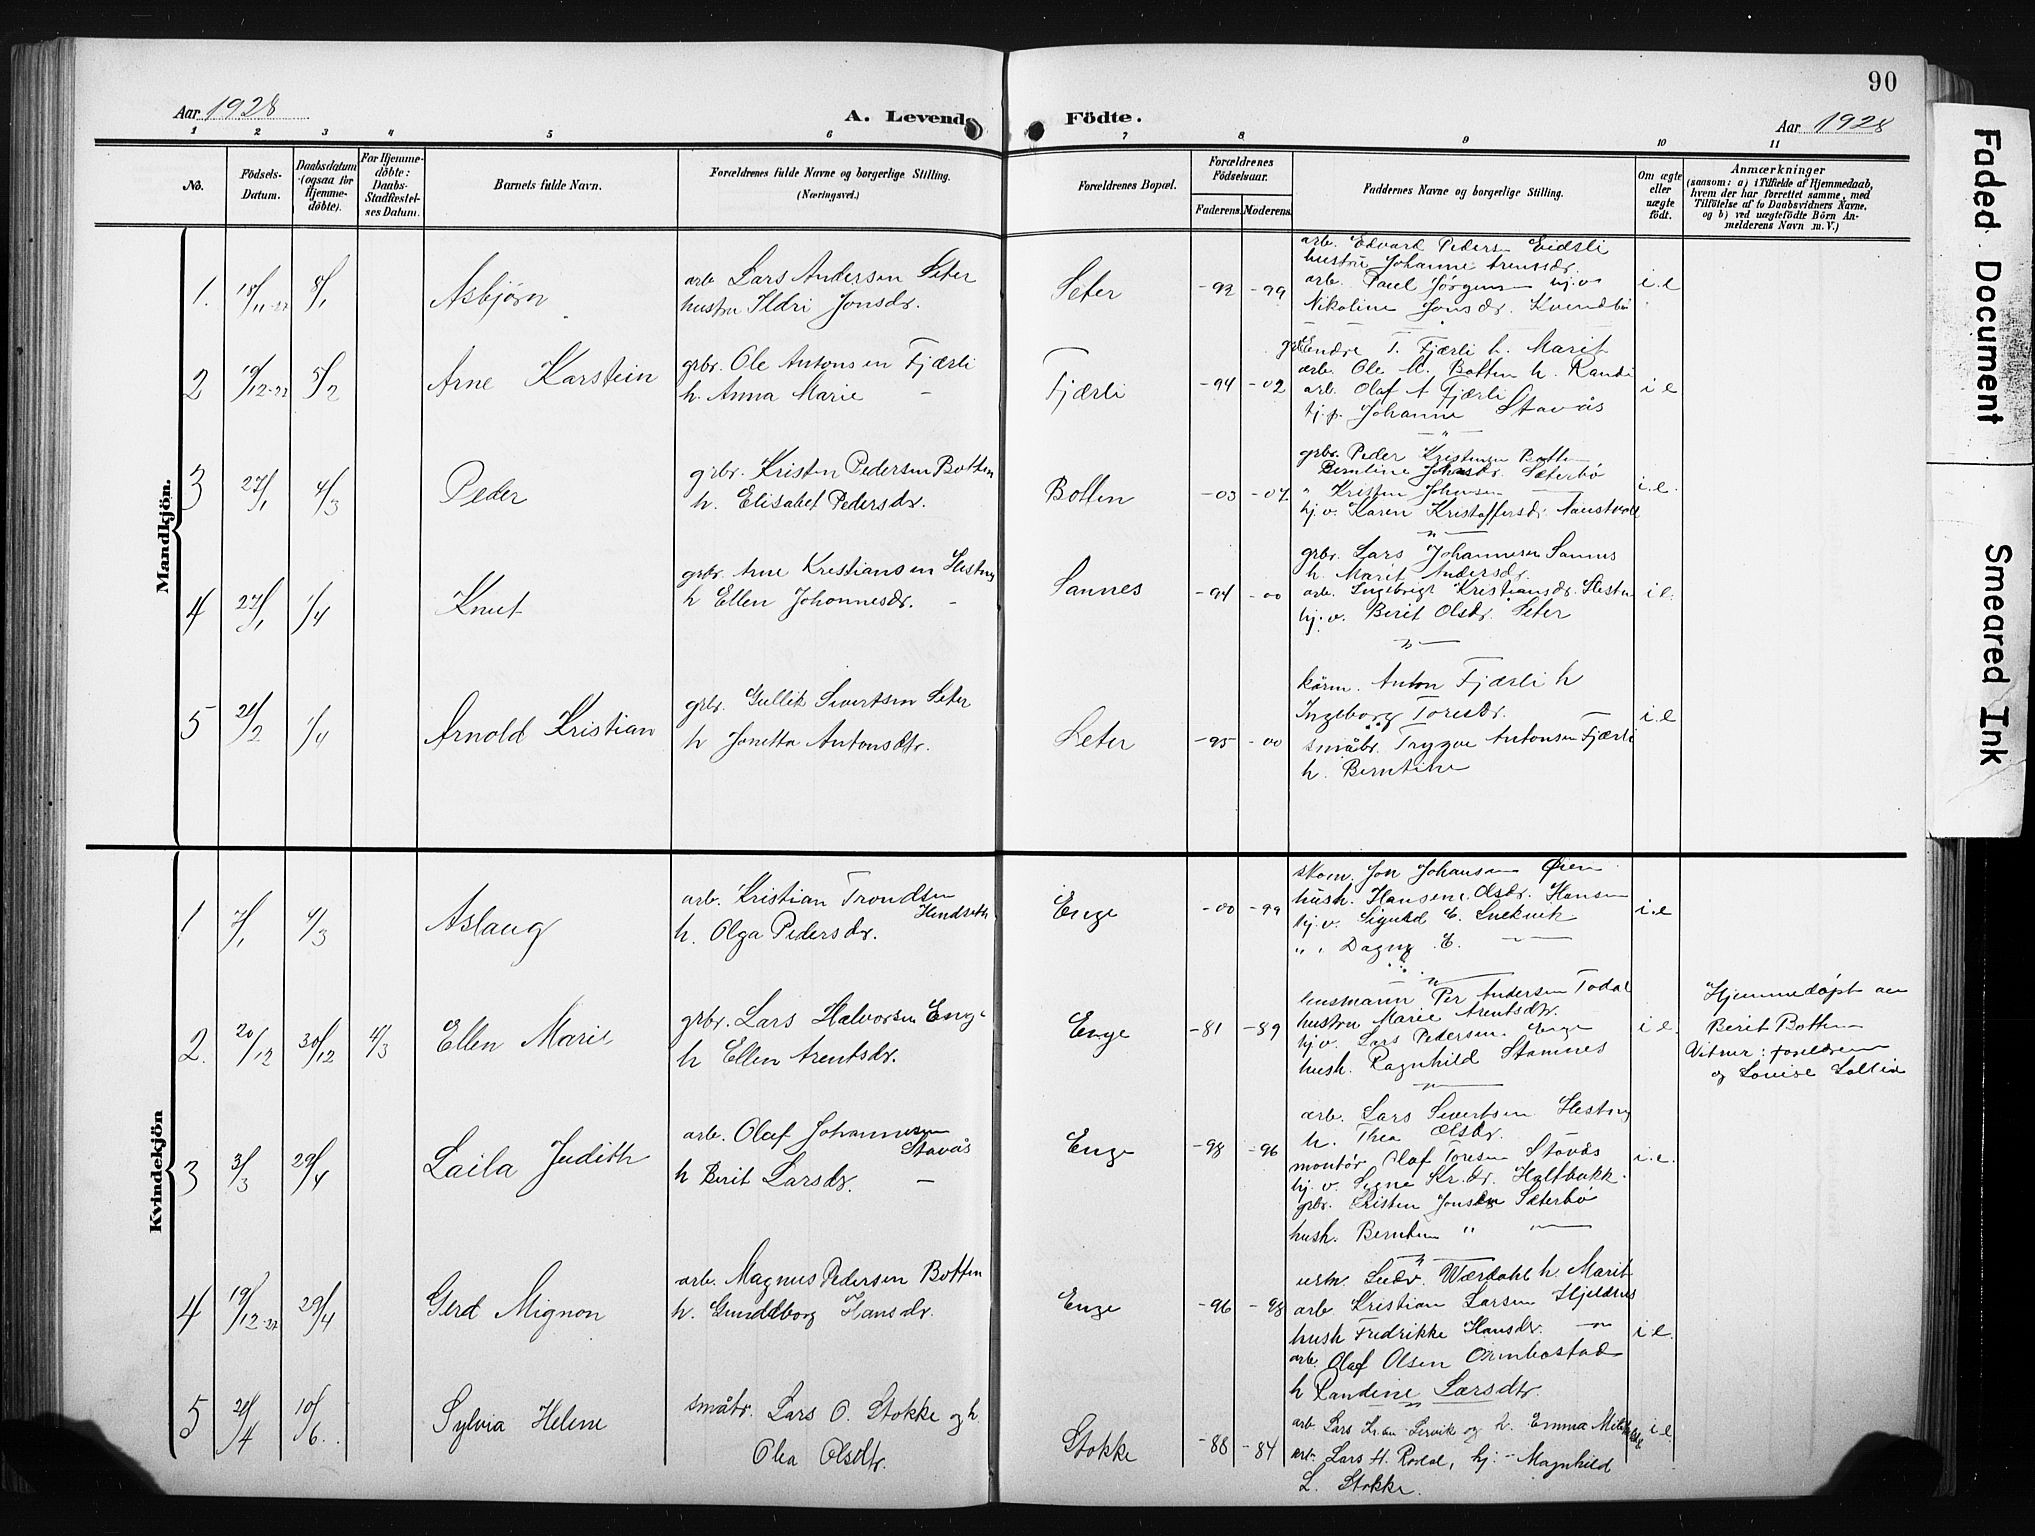 90
Aar 1928
A. Levende
Födte.
Aar 1928
1 2 3 4 5 6 7 8 9 10 11
No.
Födsels-
Datum.
Daabsdatum
(ogsaa for
Hjemme-
döbte).
For Hjemme-
döbte:
Daabs-
Stadfæstel-
ses Datum.
Barnets fulde Navn.
Forældrenes fulde Navne og borgerlige Stilling.
(Næringsvei.)
Forældrenes Bopæl.
Forældrenes
Födselsaar.
Faderens. Moderens.
Faddernes Navne og borgerlige Stilling.
Om ægte
eller
uægte
födt.
Anmærkninger
(saasom: a) i Tilfælde af Hjemmedaab,
hvem der har forrettet samme, med
Tilföielse af to Daabsvidners Navne,
og b) ved uægtefödte Börn An-
melderens Navn m. V.)
Mandkjön.
1. 18/11-27 8/1 Asbjörn
arb. Lars Andersen Seter
hustru Ildri Jonsdr.
Seter -92 -99
arb. Edvard Pedersen Eidsli
hustru Johanne Arensdr.
arb. Paul Jørgensen hj.v.
Nikoline Jonsdr. Kvendbø
i.e
2 10/12-27 5/2 Arne Karstein
grbr. Ole Antonsen Fjærli
h. Anna Marie -
Fjærli -94 -02
grbr Endre T. Fjærli h. Marit
arb. Ole M. Botten h. Randi
arb. Olaf A Fjærli
tj.p. Johanne Stavås
i e
3 27/1 4/3 Peder
grbr. Kristen Pedersen Botten
h. Elisabet Pedersdr.
Botten -03 -07
grbr. Peder Kristensen Botten
Berntine Johnsdr. Sæterbø
" Kristen Johnsen -
hj.v. Karen Kristoffersdr. Naustvoll
i.e.
4 27/1 1/4 Knut
grbr. Arne Kristiansen Hestnes
h Ellen Johannesdr. -
Sannes -94 -00
grbr. Lars Johannesen Sannes
h. Marit Andersdr.
arb. Ingebrigt Kristiansdr. Hestn
hj.v. Berit Olsdr. Seter
i e.
5 21/2 1/4 Arnold Kristian
grbr. Gullik Sivertsen Seter
h Jonetta Antonsdtr.
Seter -95 -00
kårm. Anton Fjærli h
Ingeborg Toresdr. -
småbr. Trygve Antonsen Fjærli
h. Berntine
i.e
Kvindekjön
1 7/1 4/3 Aslaug
arb. Kristian Trondsen
Hendseth
h. Olga Pedersdr.
Enge -00 -99
skom. Jon Johansen Øien
hush. Hansine Olsdr. Hansen
hj.v. Sigurd E. Snekvik
" " Dagny E. -
i.e
2. 20/12 30/12 4/3 Ellen Marie
grbr. Lars Halvorsen Enge
h Ellen Arentsdr.
Enge -81 -89
husmann Per Andersen Todal
hustru Marie Arentsdtr.
hj.v. Lars Pedersen Enge
hush. Ragnhild Stamnes
i e.
Hjemmedøpt av
Berit Botten
Vitner: foreldrene
og Lovise Sollid
3 3/3 29/4 Laila Judith
arb. Olaf Johannesen
Stavås
h Berit Larsdr. -
Enge -98 -96
arb. Lars Sivertsen Hestnes
h. Thea Olsdr.
montør Olaf Toresen Stavås
hj.v. Signe Kr.dr. Holtbakk
grbr. Kristen Jonsen Sæterbø
hush. Berntine " -
i.e.
4 19/12-27 29/4 Gerd Mignon
arb. Magnus Pedersen Botten
h. Gunddborg Hansdr.
Enge -96 -98
urm. Ludv. Wærdahl h. Marit
arb. Kristian Larsen Hjeldnes
hush Fredrikke Hansdr. -
arb. Olaf Olsen Ormbostad
h Randine Larsdtr.
i e.
5 21/4 10/6. Sylvia Helene
småbr. Lars O. Stokke og h.
Olea Olsdtr.
Stokke -88 -84
arb Lars Kr.sen Lervik og h. Emma
arb. Lars H. Rodal, hj. - Magnhild
L. Stokke.
i e.
Faded Document
Smeared Ink